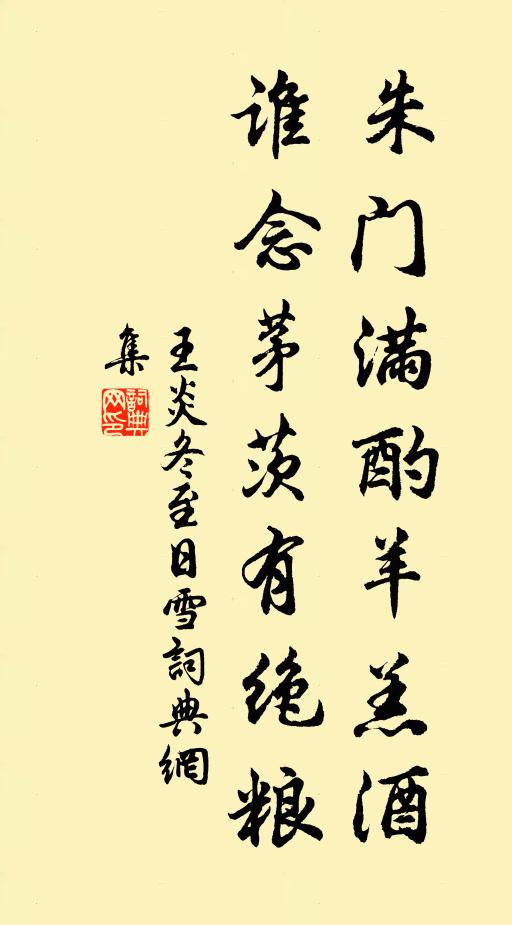 朱门满酌羊羔酒
谁念茅茨有绝粮
王炎冬至日雪詞典網
集
詞典網印